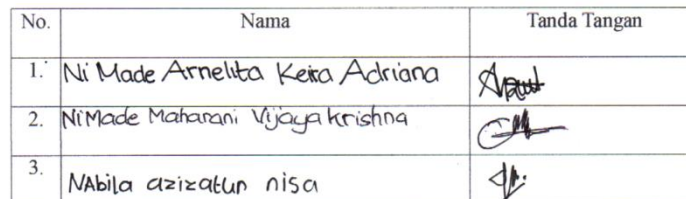 No. Nama Tanda Tangan
1. Ni Made Arnelita Keira Adriana
2. Ni Made Maharani Vijaya krishna
3. NAbila azizatun nisa